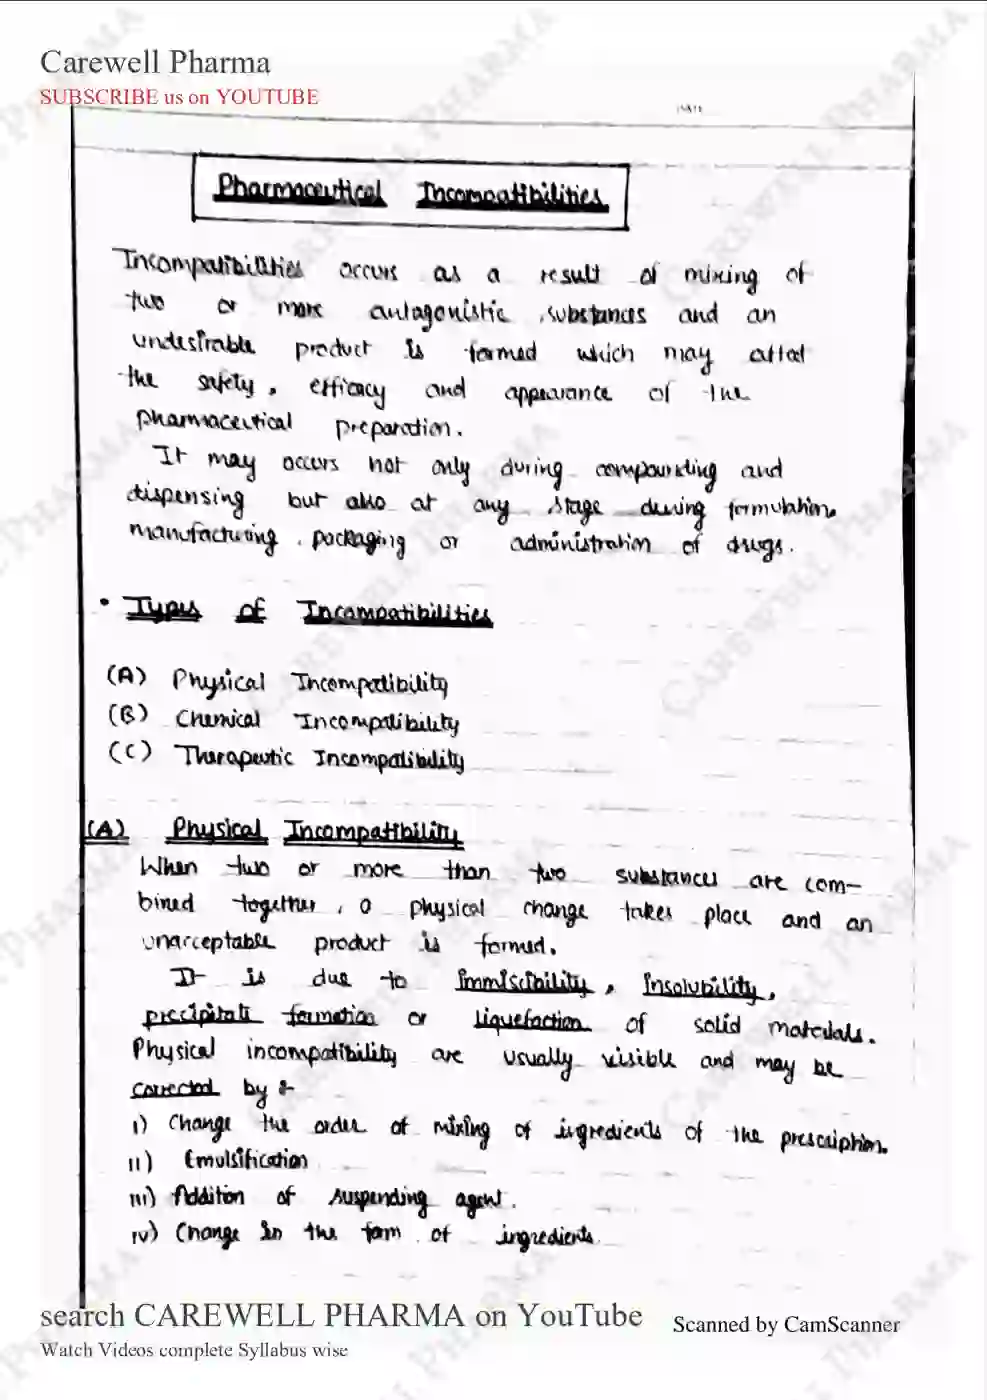 Carewell Pharma
SUBSCRIBE us on YOUTUBE
Pharmaceutical Incompatibilities
Incompatibilities occurs as a result of mixing of
two or more antagonistic substances and an
undesirable product is formed which may affect
the safety, efficacy and appearance of the
pharmaceutical preparation.
It may occurs not only during compounding and
dispensing but also at any stage during formulation,
manufacturing, packaging or administration of drugs.
• Types of Incompatibilities
(A) Physical Incompatibility
(B) Chemical Incompatibility
(C) Therapeutic Incompatibility
(A) Physical Incompatibility
When two or more than two substances are com-
bined together, a physical change takes place and an
unacceptable product is formed.
It is due to immiscibility, Insolubility,
precipitate formation or liquefaction of solid materials.
Physical incompatibility are usually visible and may be
corrected by :-
i) Change the order of mixing of ingredients of the prescription.
ii) Emulsification
iii) Addition of suspending agent.
iv) Change in the form of ingredients.
search CAREWELL PHARMA on YouTube
Scanned by CamScanner
Watch Videos complete Syllabus wise